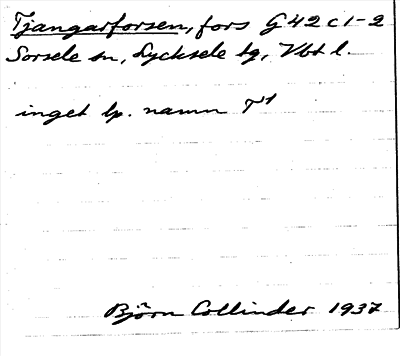 Tjangarforsen, fors G42 c 1-2
Sorsele sn, Lycksele tg, Vbt l.
inget lp. namn T1
Björn Collinder 1937